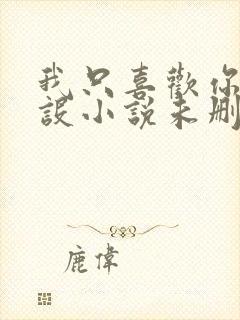 我只喜歡你
設小說未刪
鹿偉